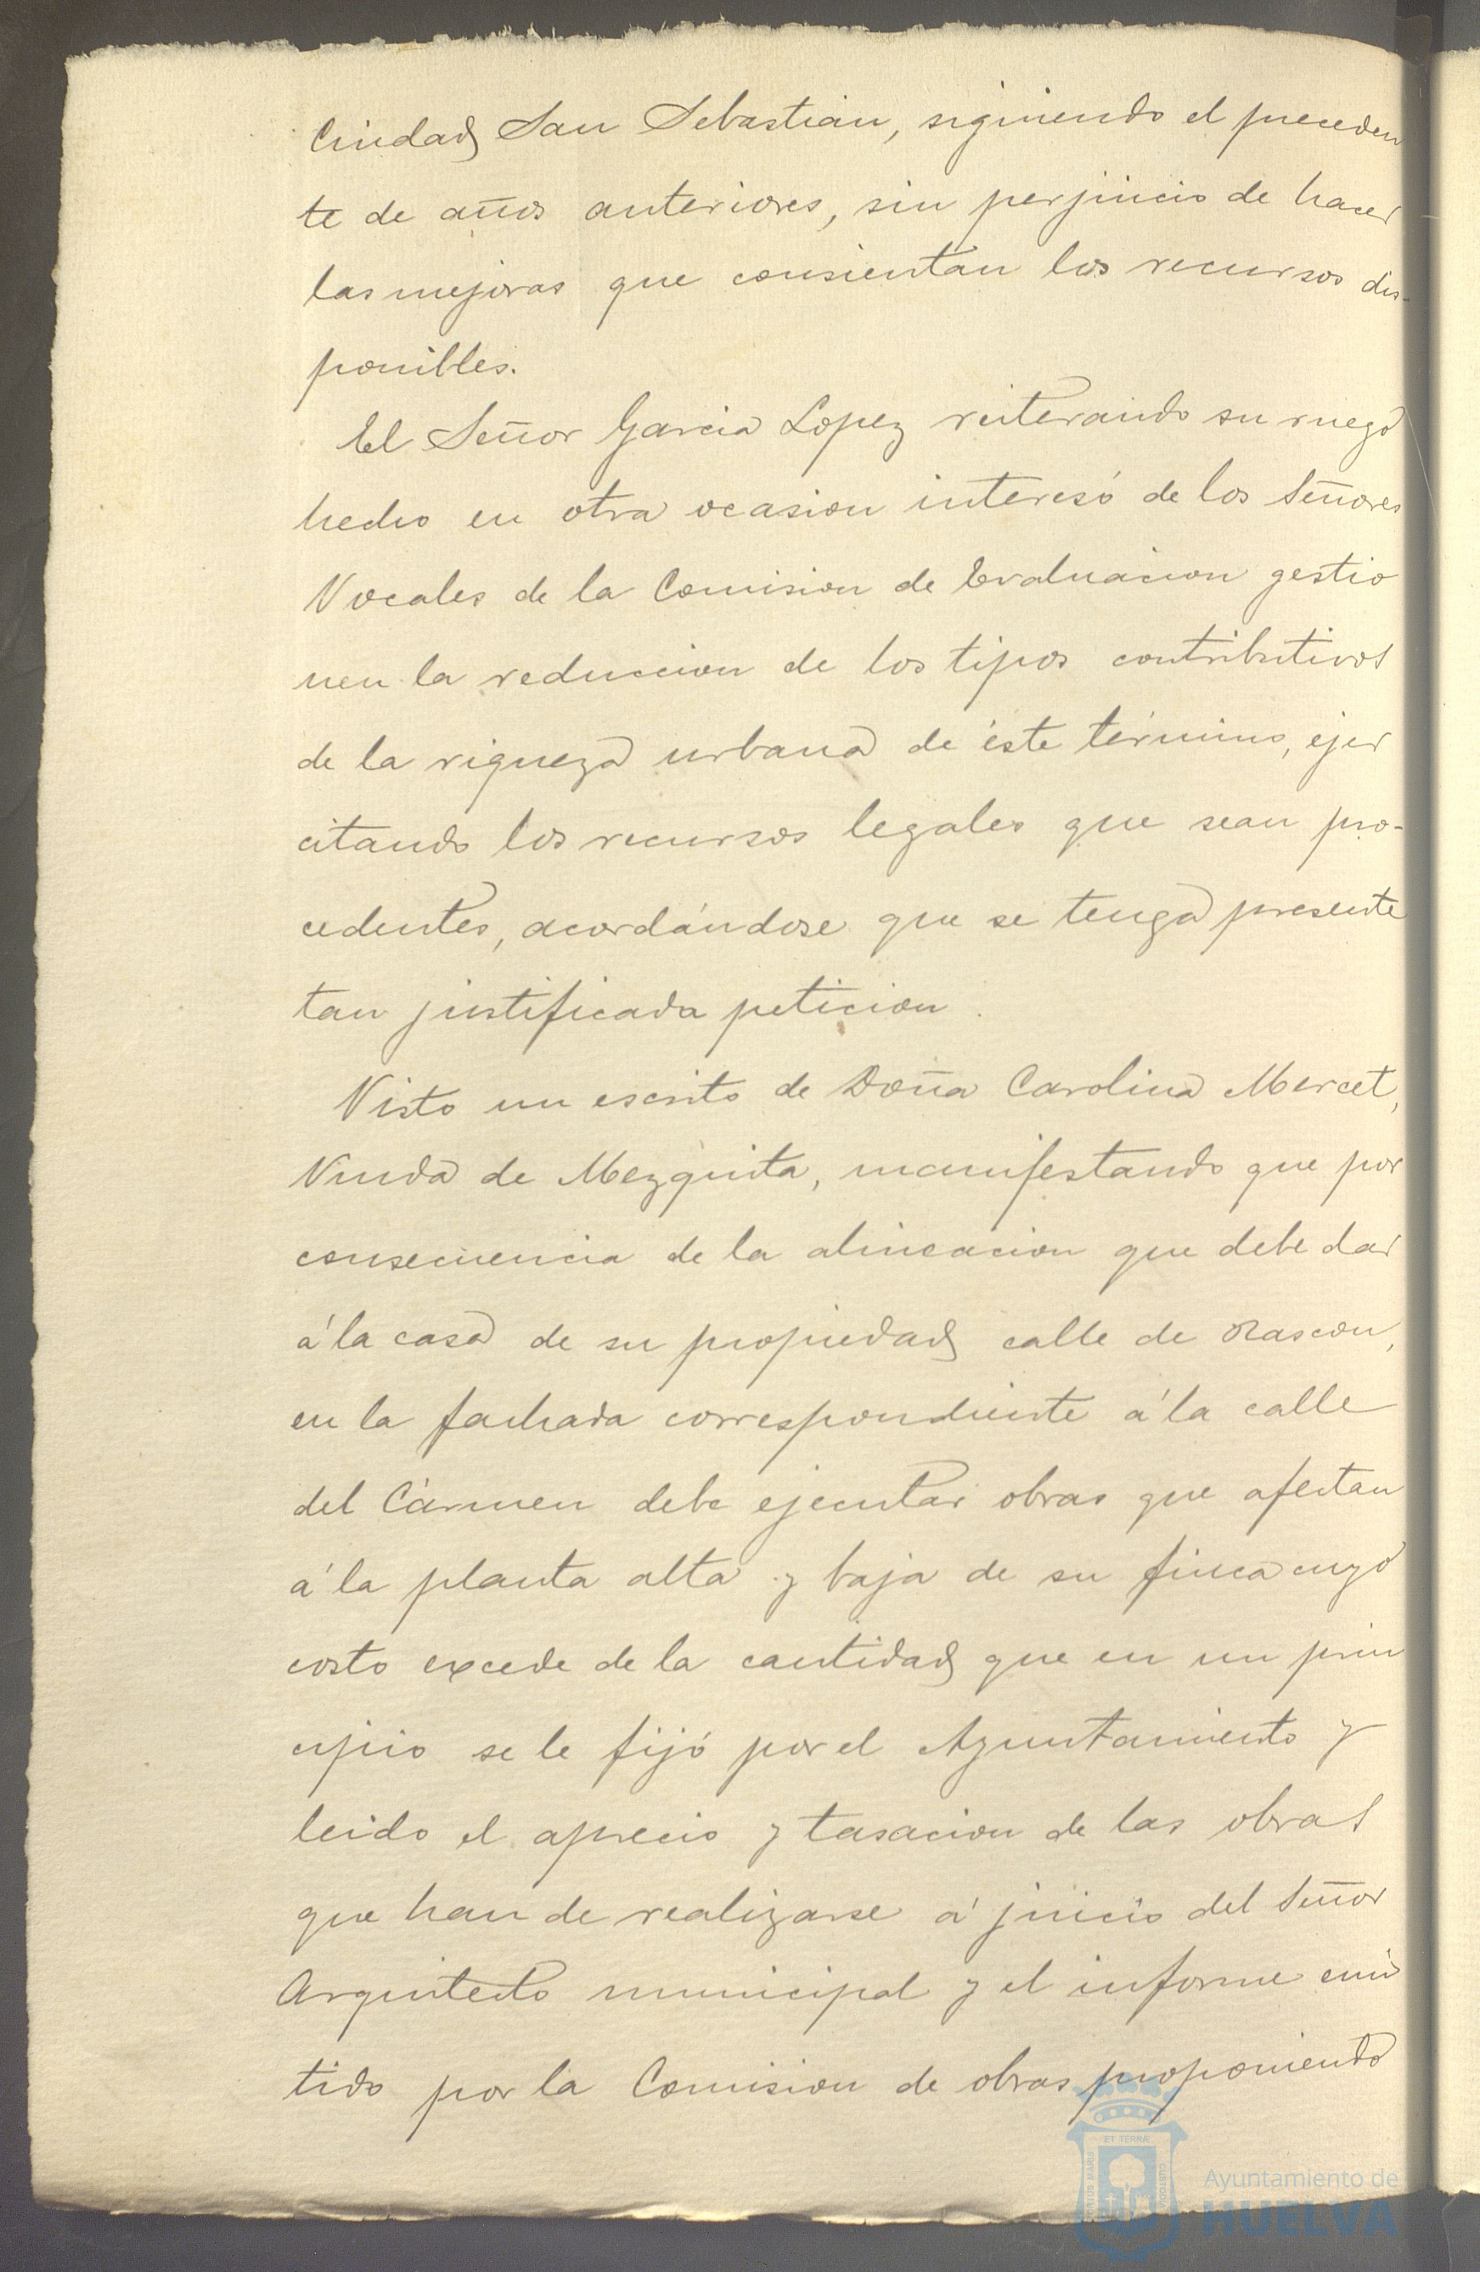 Ciudad San Sebastian, siguiendo el preceden
te de años anteriores, sin perjuicio de hacer
las mejoras que consientan los recursos dis-
ponibles.
El Señor Garcia Lopez reiterando su ruego
hecho en otra ocasion interesó de los Señores
Vocales de la Comision de Evaluacion gestio
nen la reduccion de los tipos contributivos
de la riqueza urbana de éste término, ejer
citando los recursos legales que sean pro-
cedentes, acordándose que se tenga presente
tan justificada peticion.
Visto un escrito de Doña Carolina Mercet,
Viuda de Mezquita, manifestando que por
consecuencia de la alineacion que debe dar
á la casa de su propiedad calle de Rascon,
en la fachada correspondiente á la calle
del Cármen debe ejecutar obras que afectan
á la planta alta y baja de su finca cuyo
costo excede de la cantidad que en un prin
cipio se le fijó por el Ayuntamiento y
leido el aprecio y tasacion de las obras
que han de realizarse á juicio del Señor
Arquitecto municipal y el informe emi
tido por la Comision de obras proponiendo
ET TERRÆ
PORTUS MARIS
CUSTODIA
Ayuntamiento de
HUELVA